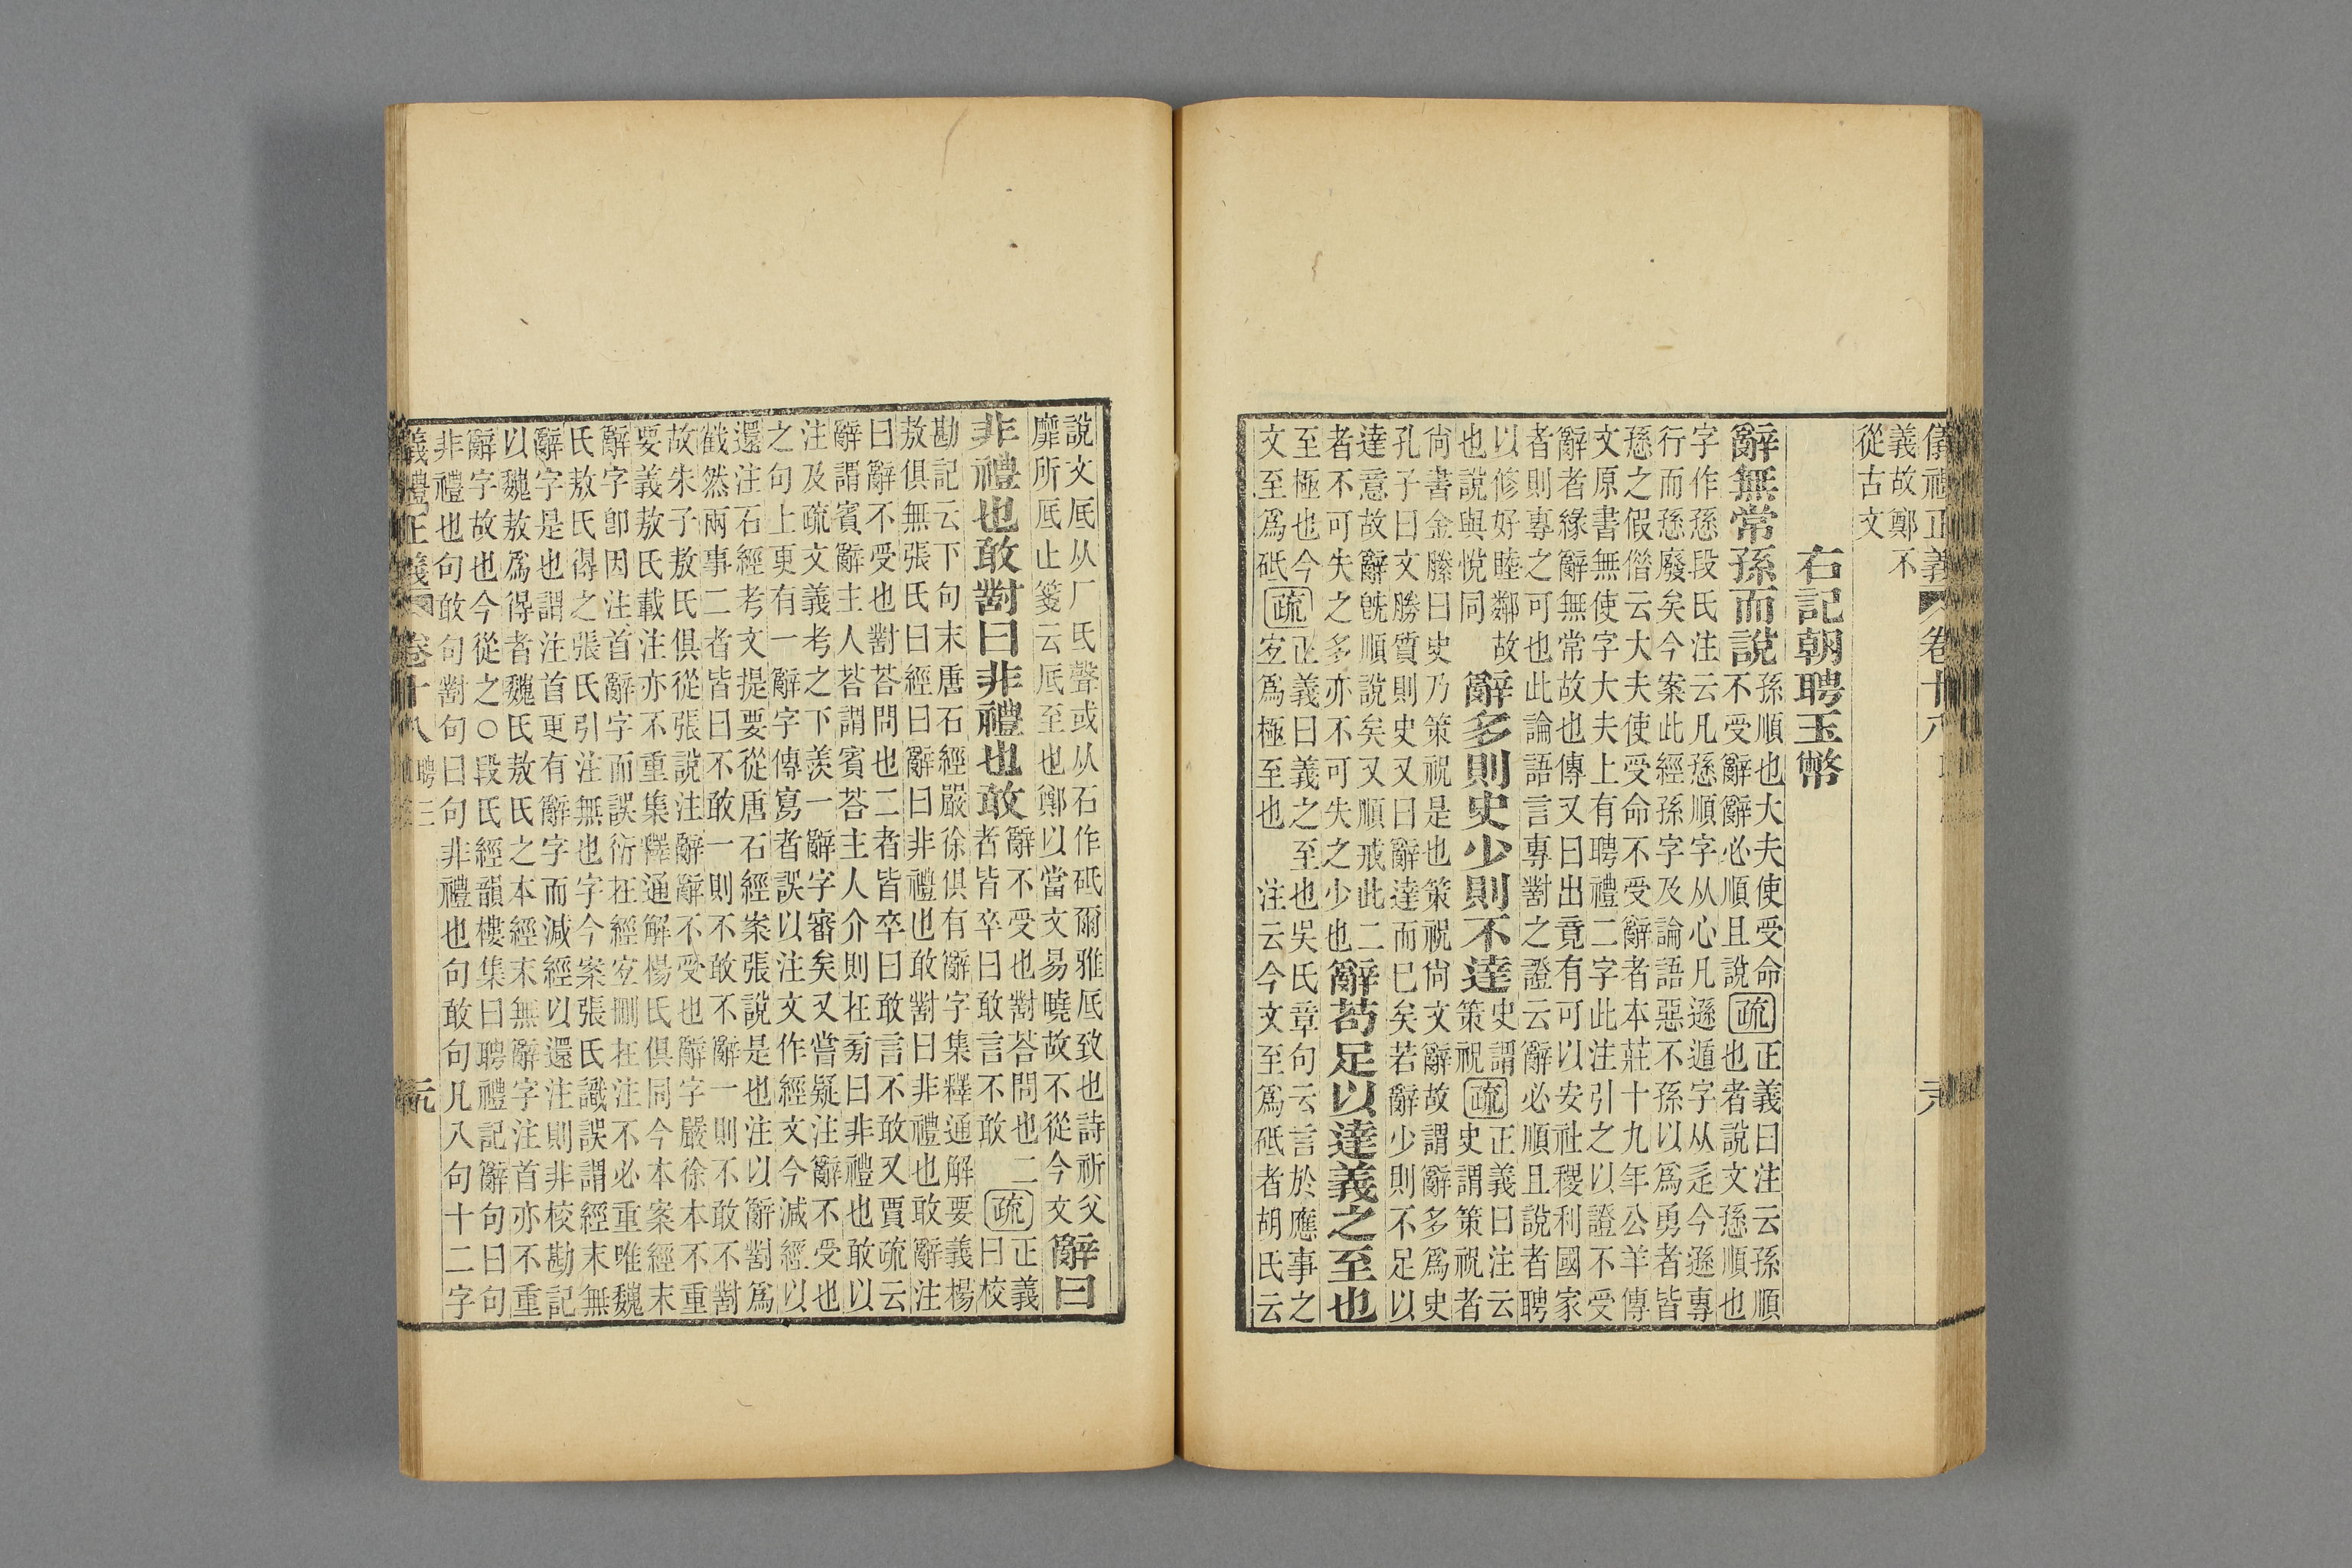 儀禮正義 卷十八
義故鄭不
從古文
右記朝聘玉幣
辭無常孫而說
孫順也大夫使受命
不受辭辭必順且說
疏
正義曰注云孫順
也者說文孫順也
字作孫段氏注云凡愻順字从心凡遜遁字从辵今遜專
行而愻廢矣今案此經孫字及論語惡不孫以爲勇者皆
愻之假借云大夫使受命不受辭者本莊十九年公羊傳
文原書無使字大夫上有聘禮二字此注引之以證不受
辭者緣辭無常故也傳又曰出竟有可以安社稷利國家
者則專之可也此論語言專對之證云辭必順且說者聘
以修好睦鄰故
也說與悅同
辭多則史少則不達
史謂
策祝
疏
正義曰注云
史謂策祝者
尙書金縢曰史乃策祝是也策祝尙文辭故謂辭多爲史
孔子曰文勝質則史又曰辭達而已矣若辭少則不足以
達意故辭旣順說矣又順戒此二
者不可失之多亦不可失之少也
辭苟足以達義之至也
至極也今
文至爲砥
疏
正義曰義之至也吳氏章句云言於應事之
宐爲極至也 注云今文至爲砥者胡氏云
說文厎从厂氐聲或从石作砥爾雅厎致也詩祈父
靡所厎止箋云厎至也鄭以當文易曉故不從今文
辭曰
非禮也敢對曰非禮也敢
辭不受也對荅問也二
者皆卒曰敢言不敢
疏
正義
曰校
勘記云下句末唐石經嚴徐俱有辭字集釋通解要義楊
敖俱無張氏曰經曰辭曰非禮也敢對曰非禮也敢辭注
曰辭不受也對荅問也二者皆卒曰敢言不敢又賈疏云
辭謂賓辭主人荅謂賓荅主人介則在旁曰非禮也敢以
注及疏文義考之下羡一辭字審矣又嘗疑注辭不受也
之句上更有一辭字傳寫者誤以注文作經文今減經以
還注石經考文提要從唐石經案張說是也注以辭對爲
截然兩事二者皆曰不敢一則不敢不辭一則不敢不對
故朱子敖氏俱從張說注辭辭不受也辭字嚴徐本不重
要義敖氏載注亦不重集釋通解楊氏俱同今本案經末
辭字卽因注首辭字而誤衍在經宐刪在注不必重唯魏
氏敖氏得之張氏引注無也字今案張氏識誤謂經末無
辭字是也謂注首更有辭字而減經以還注則非校勘記
以魏敖爲得者魏氏敖氏之本經末無辭字注首亦不重
辭字故也今從之○段氏經韻樓集曰聘禮記辭句曰句
非禮也句敢句對句曰句非禮也句敢句凡八句十二字
儀禮正義 卷十八 聘三